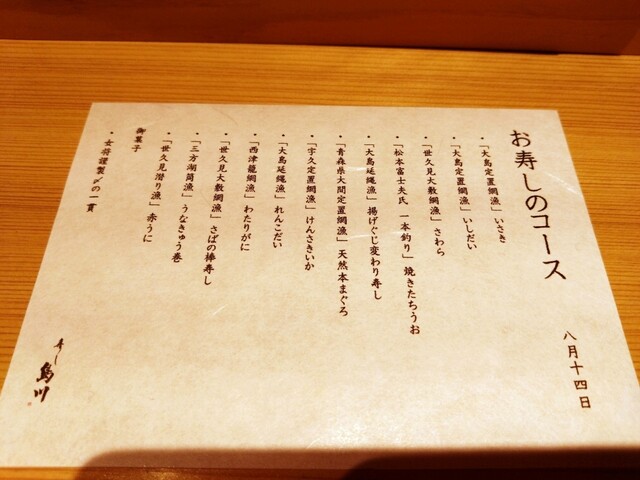 お寿しのコース
八月十四日
・「大島定置網漁」いさき
・「大島定置網漁」いしだい
・「世久見大敷網漁」さわら
・「松本富士夫氏 一本釣り」焼きたちうお
・「大島延縄漁」揚げぐじ変わり寿し
・「青森県大間定置網漁」天然本まぐろ
・「宇久定置網漁」けんさきいか
・「大島延縄漁」れんこだい
・「西津籠網漁」わたりがに
・「世久見大敷網漁」さばの棒寿し
・「三方湖筒漁」うなきゅう巻
・「世久見潜り漁」赤うに
御菓子
・女将謹製〆の一貫
寿し